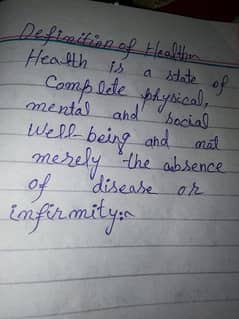 Definition of Health
Health is a state of
Complete physical,
mental and social
Well-being and not
merely the absence
of disease or
infirmity:~